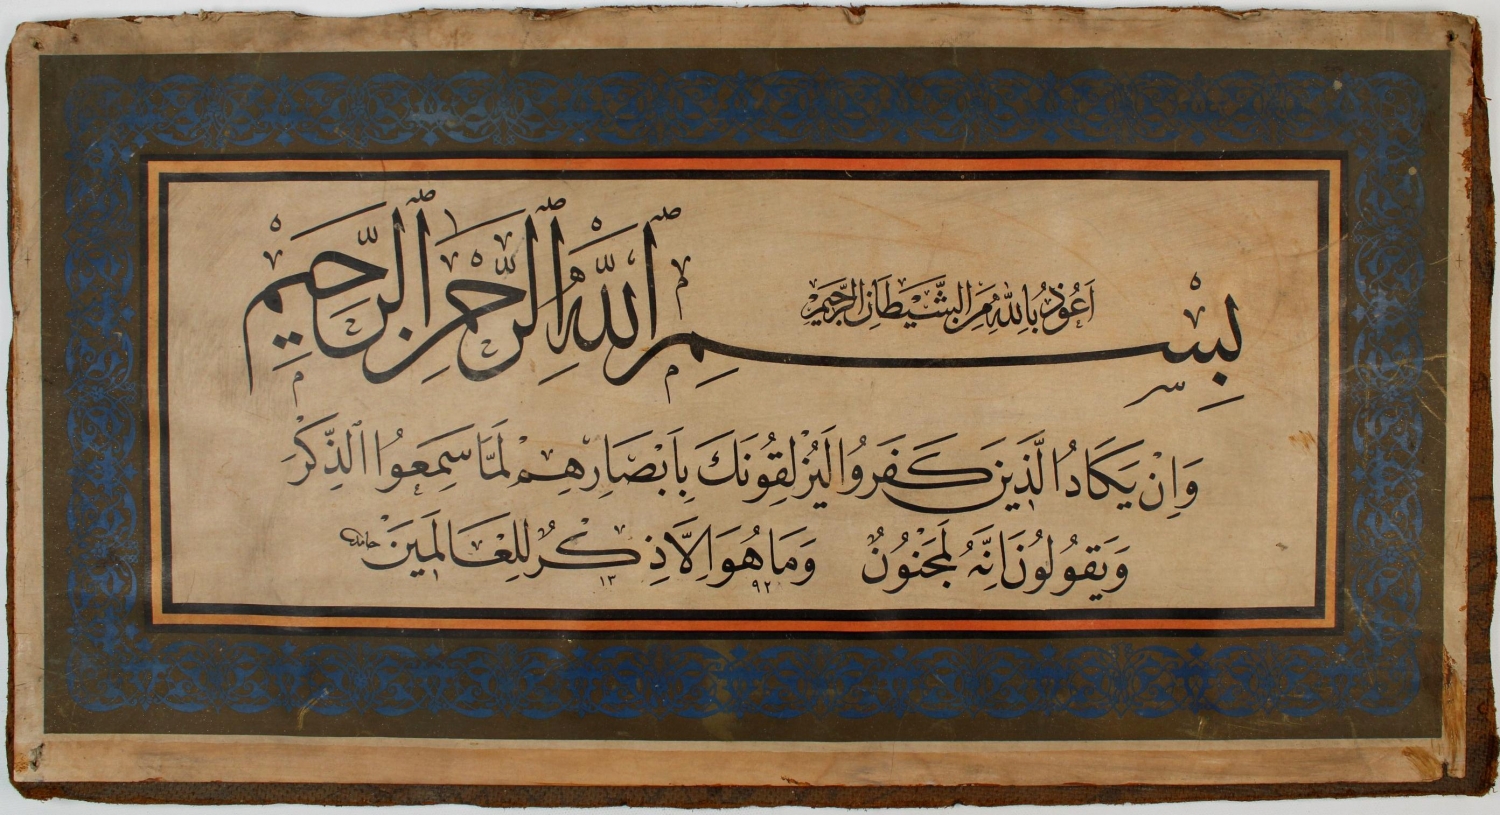 اَعُوذُ بِاللّٰهِ مِنَ الشَّيْطَانِ الرَّجِيمِ
بِسْمِ اللّٰهِ الرَّحْمٰنِ الرَّحِيمِ
وَاِنْ يَكَادُ الَّذِينَ كَفَرُوا لَيُزْلِقُونَكَ بِاَبْصَارِهِمْ لَمَّا سَمِعُوا الذِّكْرَ
وَيَقُولُونَ اِنَّهُ لَمَجْنُونٌ وَمَا هُوَ اِلَّا ذِكْرٌ لِلْعَالَمِينَ حامد
١٣ ٩٢